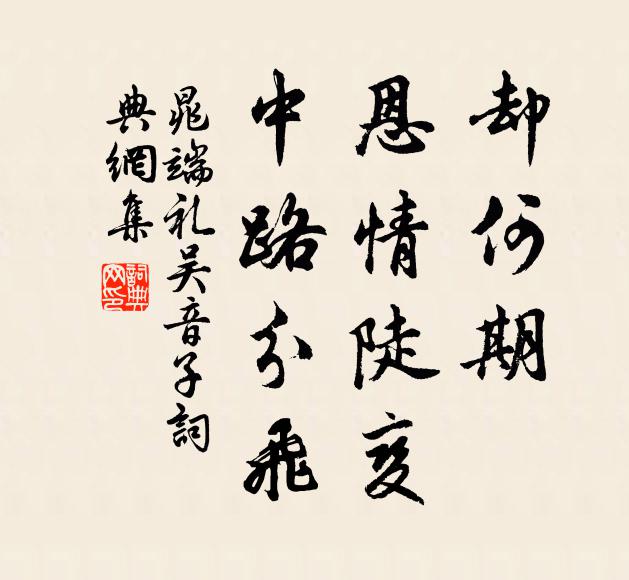 却何期
恩情陡变
中路分飛
晁端礼吴音子詞
典網集
詞典网印